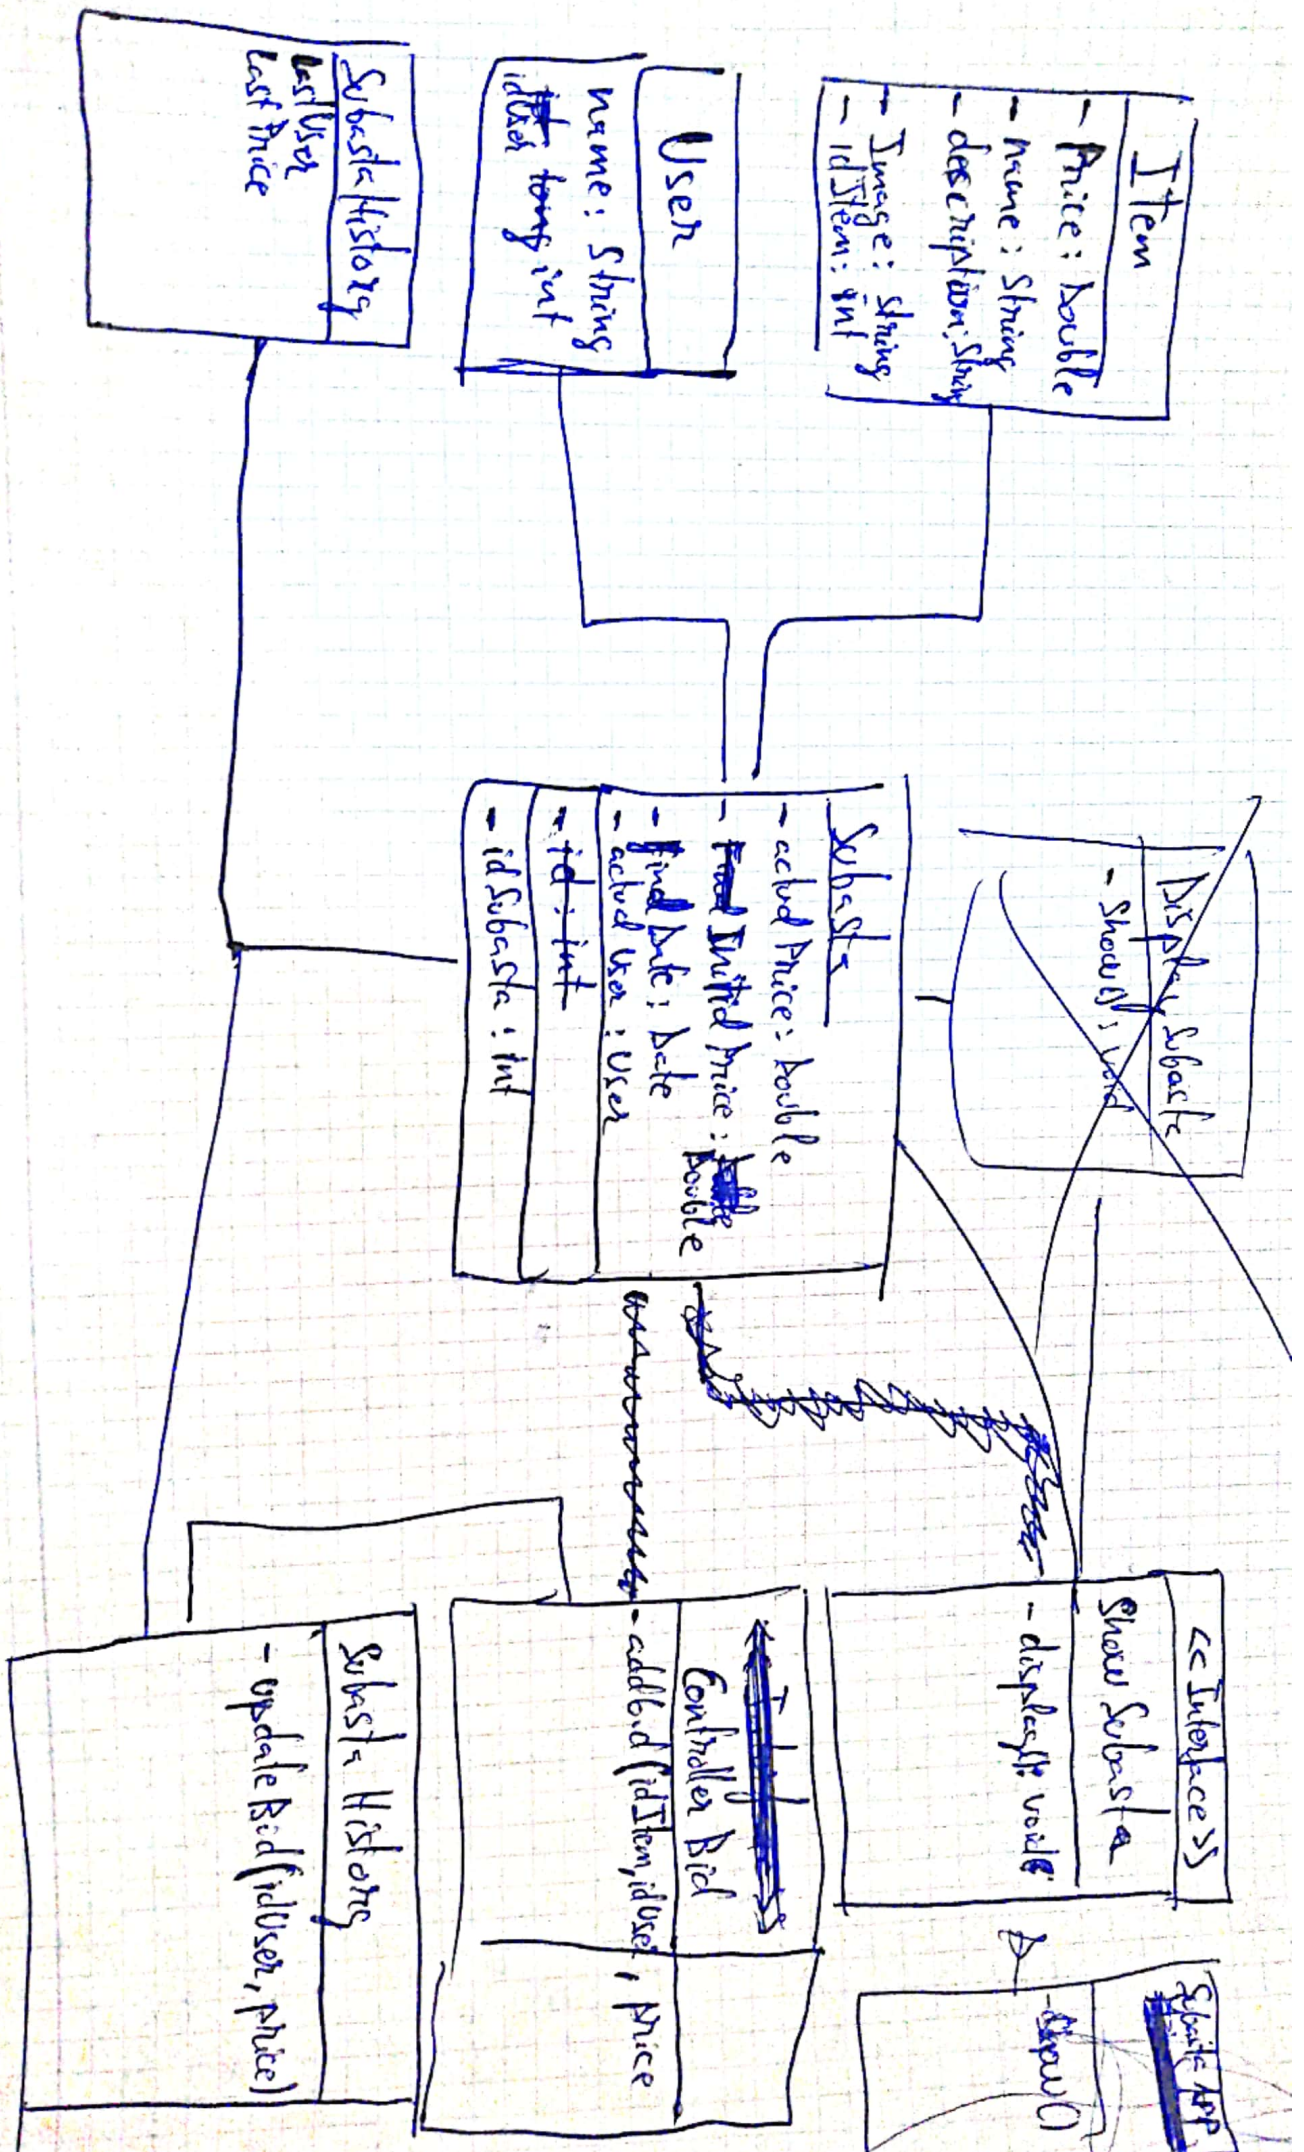 Item
- Price: Double
- name: String
- description: String
- Image: String
- idItem: int
User
name: String
idUser long, int
SubastaHistory
last User
last Price
Display Subasta
- Show(): void
Subasta
- actual Price: Double
- Initial Price: Double
- Final Date: Date
- actual User: User
- id: int
- idSubasta: int
<<Interface>>
Show Subasta
- display(): void
Controller Bid
- addbid(idItem, idUser, price
Subasta History
- updateBid(idUser, price)
Subasta APP
- Show()